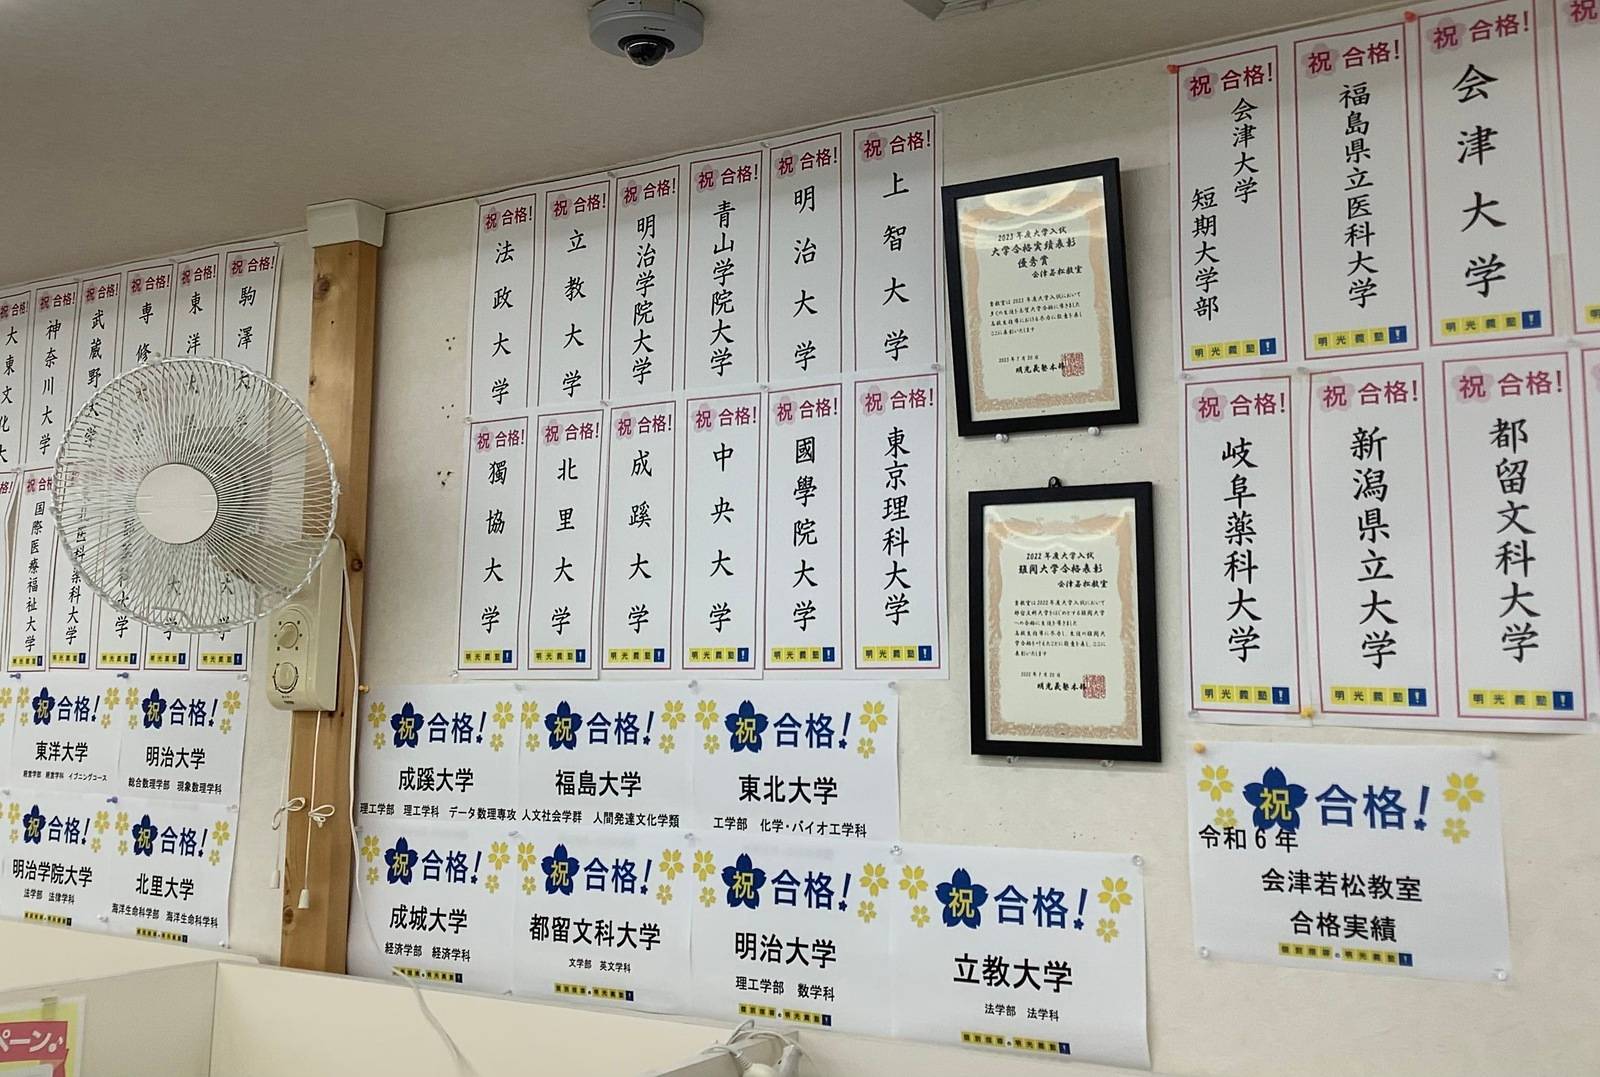 祝 合格!
大東文化大
祝 合格!
神奈川大学
祝 合格!
武蔵野大学
祝 合格!
専修
祝 合格!
東洋
祝 合格!
駒澤大
祝 合格!
国際医療福祉大学
明光義塾!
科大学
明光義塾!
大学
明光義塾!
大学
明光義塾!
大学
明光義塾!
祝 合格!
法政大学
祝 合格!
立教大学
祝 合格!
明治学院大学
祝 合格!
青山学院大学
祝 合格!
明治大学
祝 合格!
上智大学
祝 合格!
獨協大学
明光義塾!
祝 合格!
北里大学
明光義塾!
祝 合格!
成蹊大学
明光義塾!
祝 合格!
中央大学
明光義塾!
祝 合格!
國學院大学
明光義塾!
祝 合格!
東京理科大学
明光義塾!
2023年度大学入試
大学合格実績表彰
優秀賞
会津若松教室
貴教室は2023年度大学入試において
多くの生徒を志望大学合格に導きました
ここに表彰いたします
2023年7月20日
明光義塾本部
2022年度大学入試
難関大学合格表彰
会津若松教室
貴教室は2022年度大学入試において
への合格に生徒を導きました
表彰いたします
2022年7月20日
明光義塾本部
祝 合格!
会津大学
短期大学部
明光義塾!
祝 合格!
福島県立医科大学
明光義塾!
祝 合格!
会津大学
明光義塾!
祝
祝 合格!
岐阜薬科大学
明光義塾!
祝 合格!
新潟県立大学
明光義塾!
祝 合格!
都留文科大学
明光義塾!
祝 合格!
東洋大学
経営学部 経営学科 イブニングコース
祝 合格!
明治大学
総合数理学部 現象数理学科
祝 合格!
明治学院大学
法学部 法律学科
祝 合格!
北里大学
海洋生命科学部 海洋生命科学科
祝 合格!
成蹊大学
理工学部 理工学科 データ数理専攻
祝 合格!
福島大学
人文社会学群 人間発達文化学類
祝 合格!
東北大学
工学部 化学・バイオ工学科
祝 合格!
成城大学
経済学部 経済学科
個別指導の明光義塾!
祝 合格!
都留文科大学
文学部 英文学科
個別指導の明光義塾!
祝 合格!
明治大学
理工学部 数学科
個別指導の明光義塾!
祝 合格!
立教大学
法学部 法学科
個別指導の明光義塾!
祝 合格!
令和6年
会津若松教室
合格実績
個別指導の明光義塾!
ペーン♪